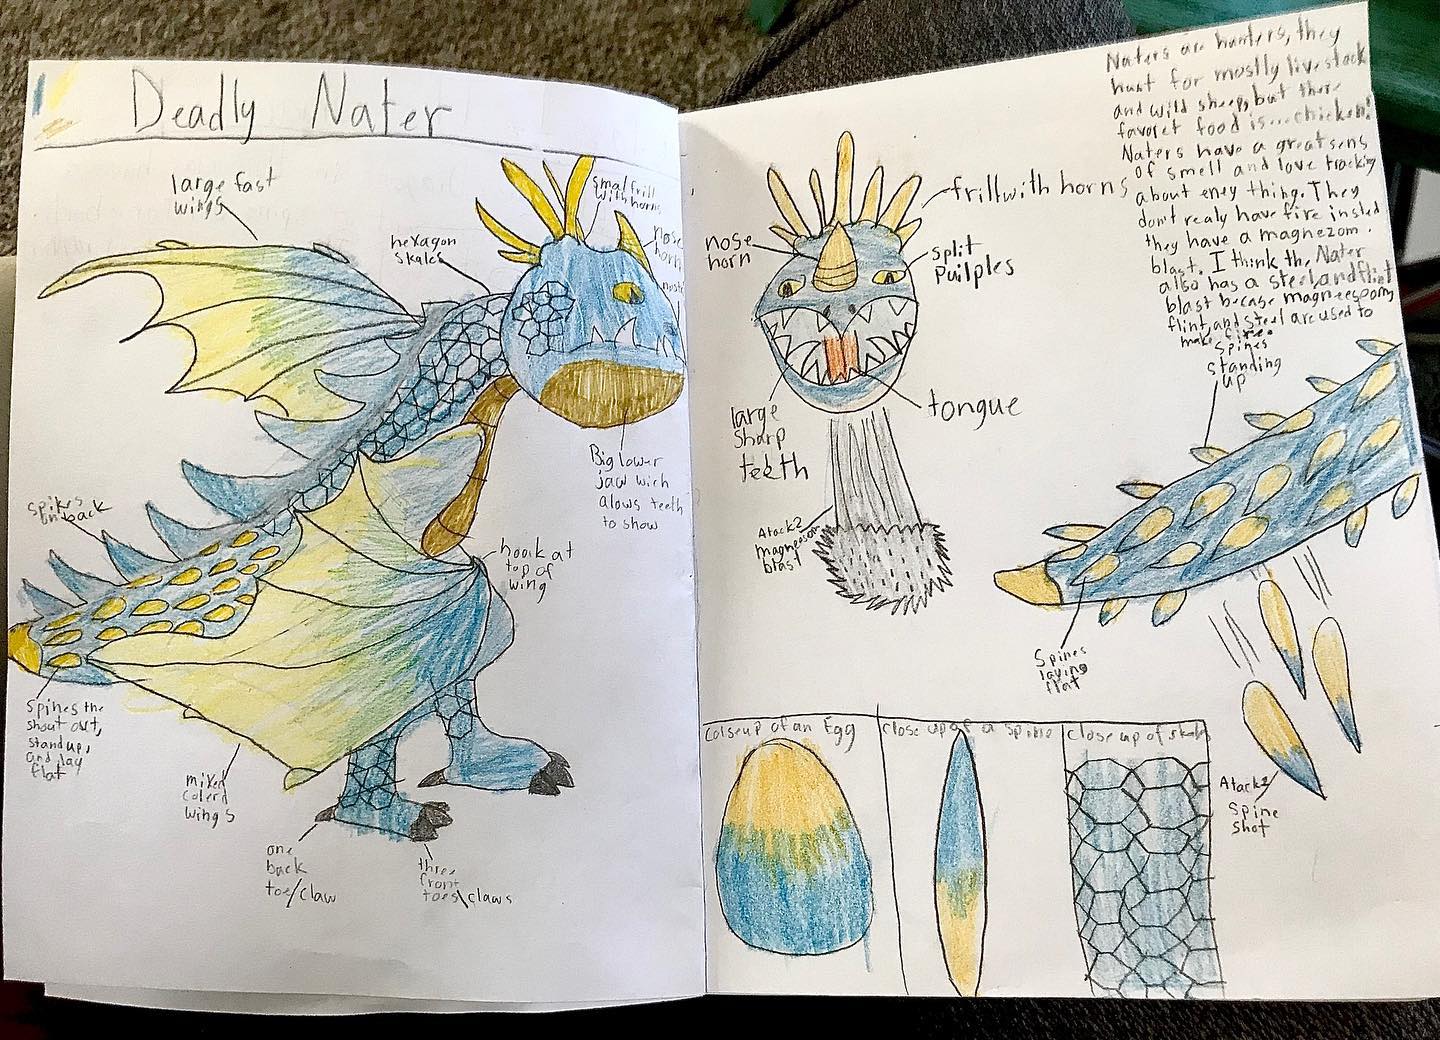 Deadly Nater
large fast
wings
hexagon
skales
smal frill
with horns
nose
horn
Big lower
jaw wich
alows teeth
to show
spikes
on back
hook at
top of
wing
spines the
shout out,
stand up,
and lay
flat
mixed
colerd
wings
one
back
toe/claw
three
front
toes\claws
Naters are hunters, they
hunt for mostly livestock
and wild sheep, but there
favoret food is...chicken!
Naters have a great sens
of smell and love tracking
about eney thing. They
don't realy have fire insted
they have a magnezom
blast. I think the Nater
also has a steel and flint
blast becase
flint, and steel are used to
make fire.
frill with horns
nose
horn
split
Puilples
large
sharp
teeth
tongue
Atack 2
blast
spines
standing
up
Spines
laying
flat
Atack 2
Spine
shot
Colseup of an Egg
close up of a spine
close up of skales